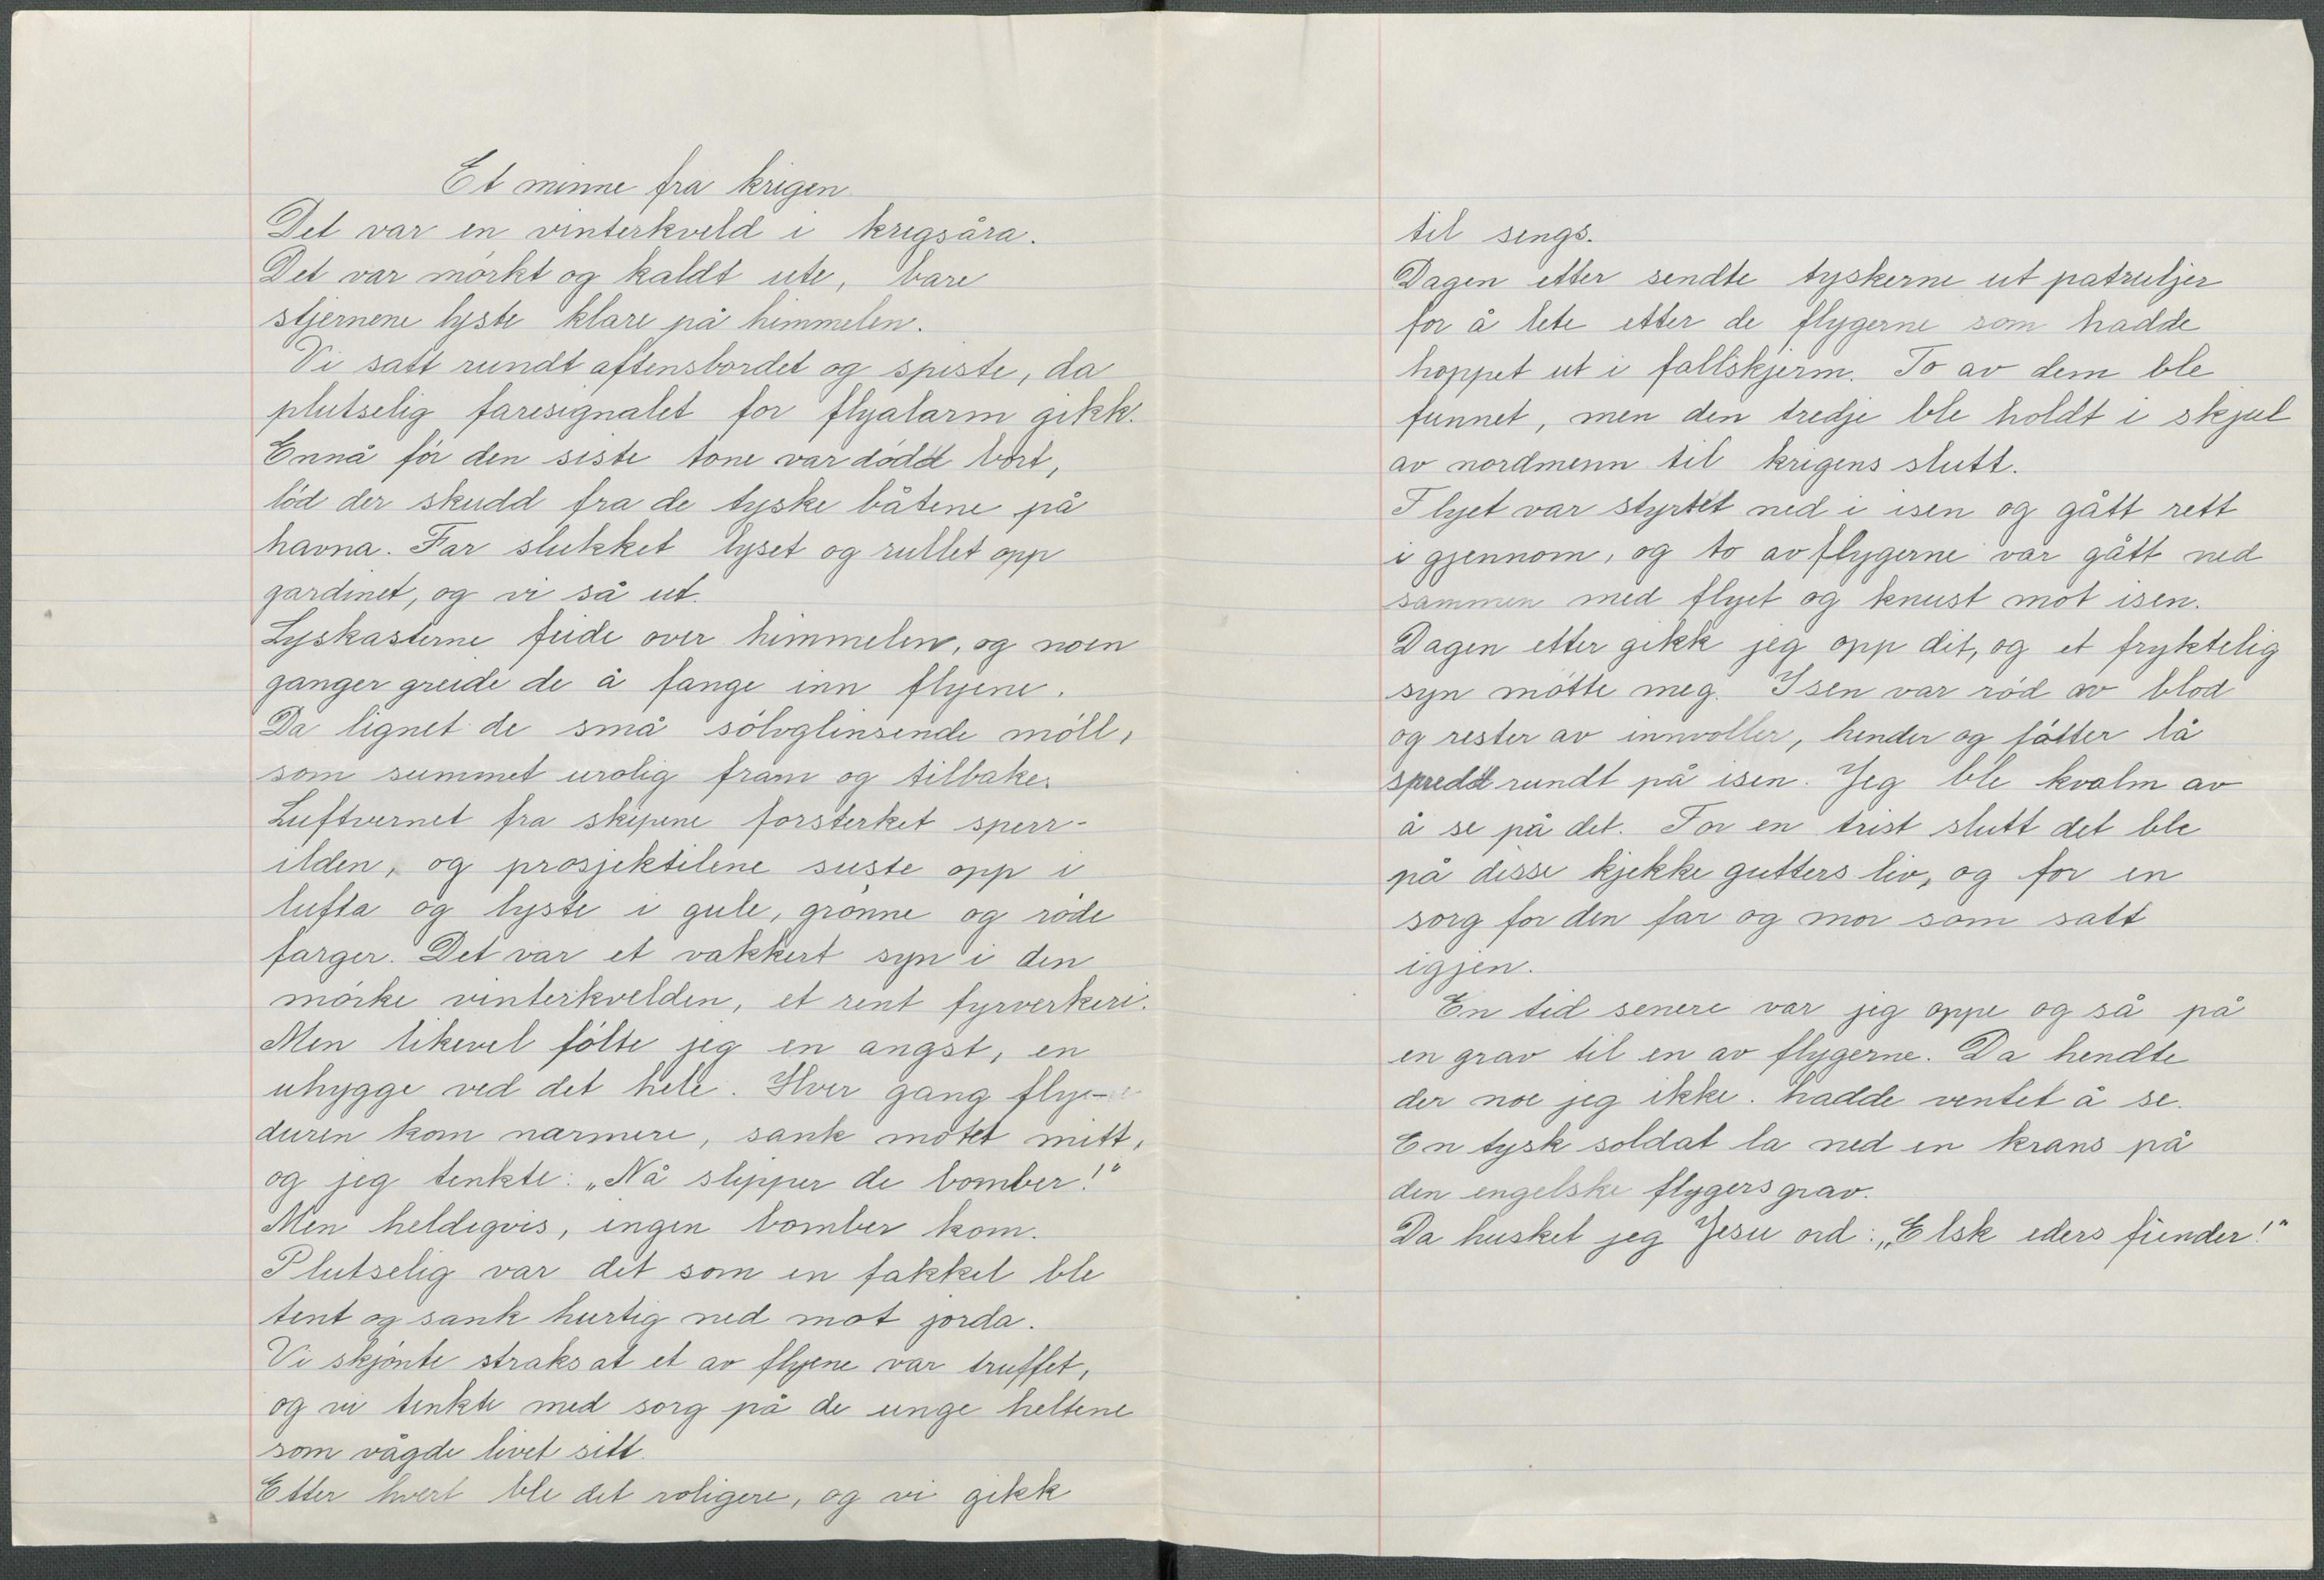 Et minne fra krigen.
Det var en vinterkveld i krigsåra.
Det var mörkt og kaldt ute, bare
stjernene lyste klare på himmelen.
Vi satt rundt aftensbordet og spiste, da
plutselig faresignalet for flyalarm gikk.
Ennå för den siste tone var dödd bort,
löd der skudd fra de tyske båtene på
havna. Far slukket lyset og rullet opp
gardinet, og vi så ut.
Lyskasterne feide over himmelen, og noen
ganger greide de å fange inn flyene.
Da lignet de små sölvglinsende möll,
som summet urolig fram og tilbake.
Luftvernet fra skipene forsterket sperr-
ilden, og prosjektilene suste opp i
lufta og lyste i gule, grönne og röde
farger. Det var et vakkert syn i den
mörke vinterkvelden, et rent fyrverkeri.
Men likevel fölte jeg en angst, en
uhygge ved det hele. Hver gang fly-
duren kom nærmere, sank motet mitt,
og jeg tenkte: „Nå slipper de bomber!"
Men heldigvis, ingen bomber kom.
Plutselig var det som en fakkel ble
tent og sank hurtig ned mot jorda.
Vi skjönte straks at et av flyene var truffet,
og vi tenkte med sorg på de unge heltene
som vågde livet sitt.
Etter hvert ble det roligere, og vi gikk
til sengs.
Dagen etter sendte tyskerne ut patruljer
for å lete etter de flygerne som hadde
hoppet ut i fallskjerm. To av dem ble
funnet, men den tredje ble holdt i skjul
av nordmenn til krigens slutt.
Flyet var styrtet ned i isen og gått rett
i gjennom, og to av flygerne var gått ned
sammen med flyet og knust mot isen.
Dagen etter gikk jeg opp dit, og et fryktelig
syn mötte meg. Isen var röd av blod
og rester av innvoller, hender og fötter lå
spredt rundt på isen. Jeg ble kvalm av
å se på det. For en trist slutt det ble
på disse kjekke gutters liv, og for en
sorg for den far og mor som satt
igjen.
En tid senere var jeg oppe og så på
en grav til en av flygerne. Da hendte
der noe jeg ikke hadde ventet å se.
En tysk soldat la ned en krans på
den engelske flygers grav.
Da husket jeg Jesu ord: „Elsk eders fiender!"